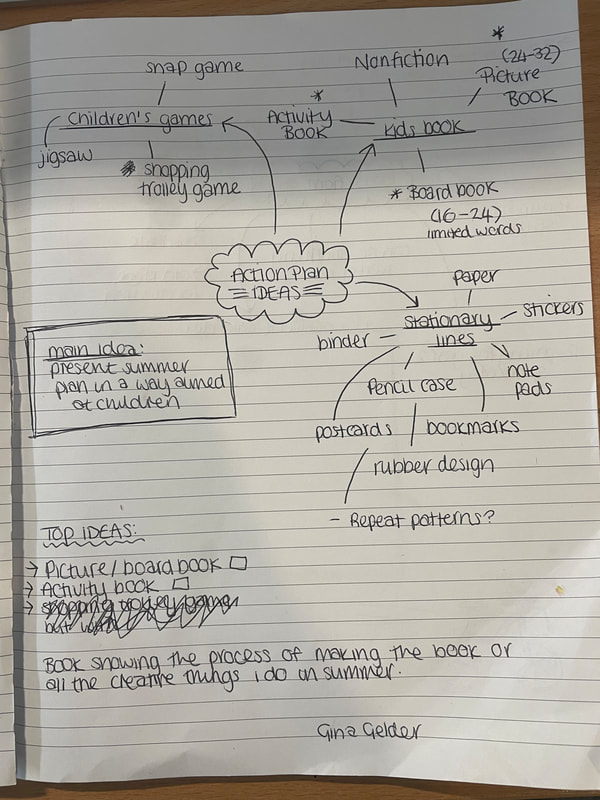 snap game
Children's games
jigsaw
shopping
trolley game
Nonfiction
*
(24-32)
Picture
BOOK
*
Activity
BOOK
Kids book
* Board book
(16-24)
limited words
ACTION Plan
IDEAS
paper
stickers
Stationary
lines
binder
note
pads
Pencil case
postcards
bookmarks
rubber design
- Repeat patterns?
main idea:
present summer
plan in a way aimed
at children
TOP IDEAS:
→ Picture/board book □
→ Activity book □
→ shopping trolley game
but
Book showing the process of making the book or
all the creative things i do in summer.
Gina Gelder